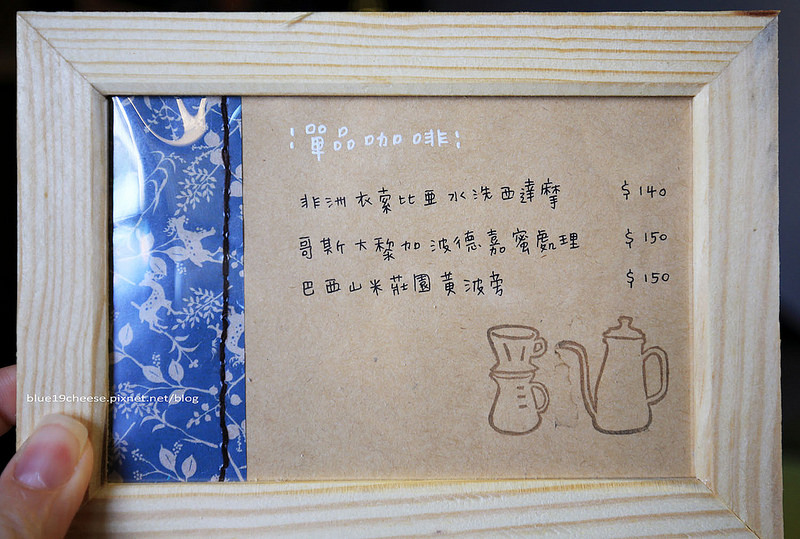 :單品咖啡:
非洲衣索比亞水洗西達摩 $140
哥斯大黎加波德嘉蜜處理 $150
巴西山米莊園黃波旁 $150
blue19cheese.pixnet.net/blog